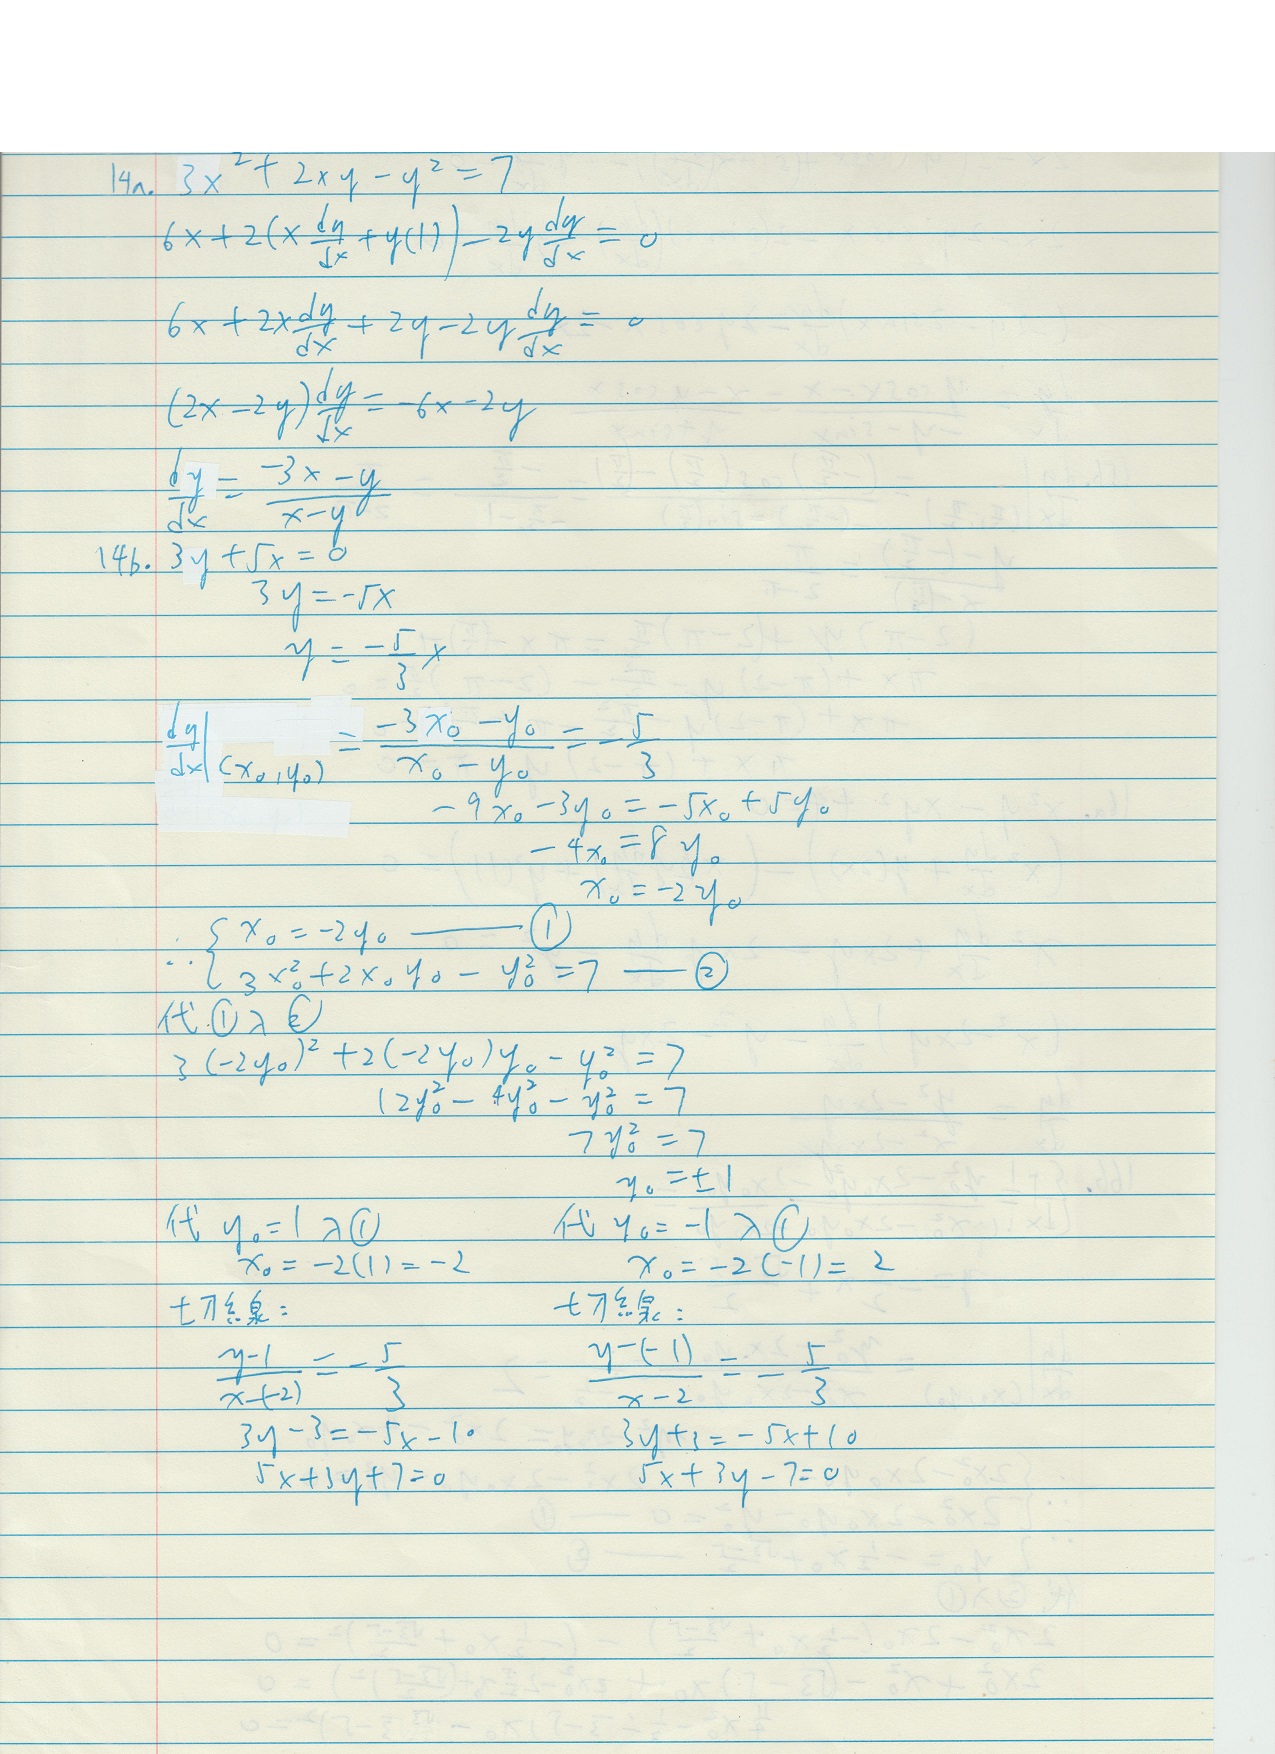 14a. 3x² + 2xy - y² = 7
6x + 2(x dy/dx + y(1)) - 2y dy/dx = 0
6x + 2x dy/dx + 2y - 2y dy/dx = 0
(2x - 2y) dy/dx = -6x - 2y
dy/dx = (-3x - y)/(x - y)
14b. 3y + 5x = 0
3y = -5x
y = -5/3 x
dy/dx |(x₀, y₀) = (-3x₀ - y₀)/(x₀ - y₀) = -5/3
-9x₀ - 3y₀ = -5x₀ + 5y₀
-4x₀ = 8y₀
x₀ = -2y₀
∴ { x₀ = -2y₀ —— ①
3x₀² + 2x₀y₀ - y₀² = 7 —— ②
代①入②
3(-2y₀)² + 2(-2y₀)y₀ - y₀² = 7
12y₀² - 4y₀² - y₀² = 7
7y₀² = 7
y₀ = ±1
代 y₀ = 1 入① 代 y₀ = -1 入①
x₀ = -2(1) = -2 x₀ = -2(-1) = 2
切線: 切線:
(y-1)/(x-(-2)) = -5/3 (y-(-1))/(x-2) = -5/3
3y - 3 = -5x - 10 3y + 3 = -5x + 10
5x + 3y + 7 = 0 5x + 3y - 7 = 0